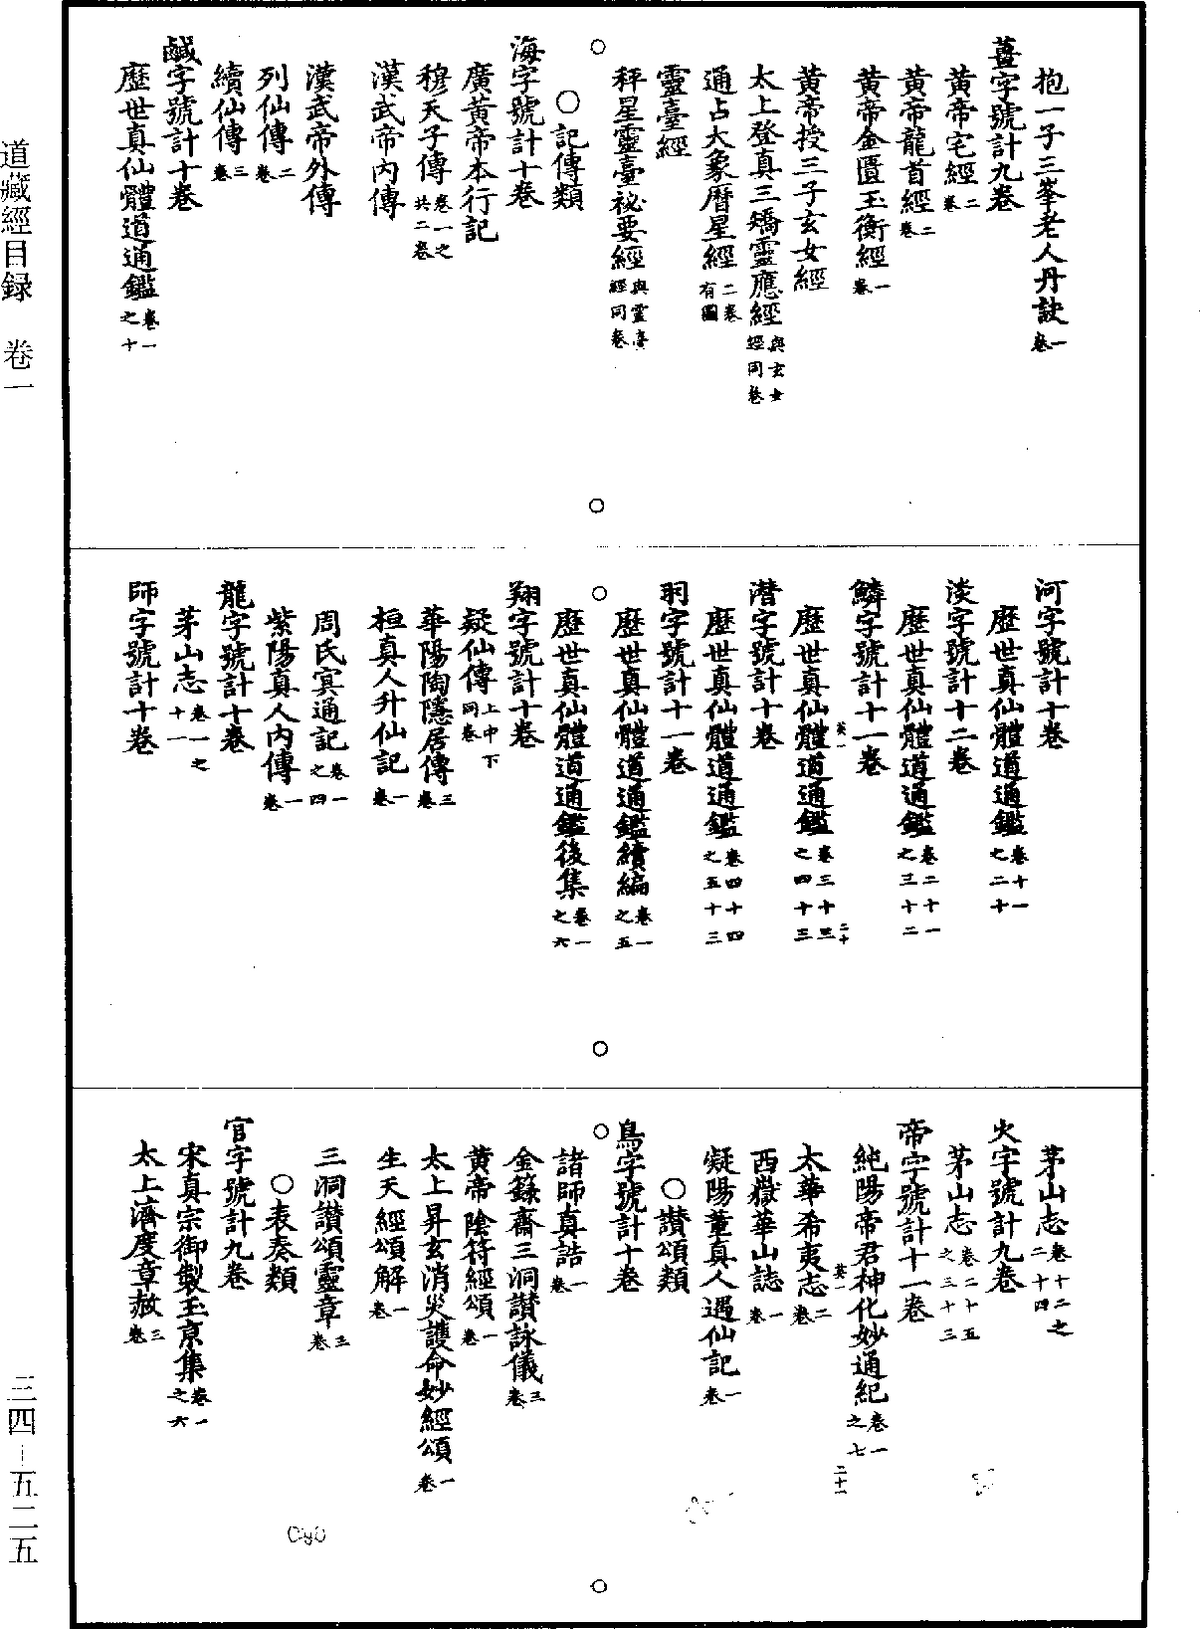 抱一子三峯老人丹訣一卷
薑字號計九卷
黃帝宅經二卷
黃帝龍首經二卷
黃帝金匱玉衡經一卷
黃帝授三子玄女經
太上登真三矯靈應經與玄女經同卷
通占大象曆星經二卷有圖
靈臺經
秤星靈臺祕要經與靈臺經同卷
○記傳類
海字號計十卷
廣黃帝本行記
穆天子傳卷一之六共二卷
漢武帝內傳
漢武帝外傳
列仙傳二卷
續仙傳三卷
鹹字號計十卷
歷世真仙體道通鑑卷一之十
河字號計十卷
歷世真仙體道通鑑卷十一之二十
淡字號計十二卷
歷世真仙體道通鑑卷二十一之三十二
鱗字號計十一卷
歷世真仙體道通鑑卷三十三之四十三
英一 二十
潛字號計十卷
歷世真仙體道通鑑卷四十四之五十三
羽字號計十一卷
歷世真仙體道通鑑續編卷一之五
歷世真仙體道通鑑後集卷一之六
翔字號計十卷
疑仙傳上中下同卷
華陽陶隱居傳三卷
桓真人升仙記一卷
周氏冥通記卷一之四
紫陽真人內傳一卷
龍字號計十卷
茅山志卷一之十一
師字號計十卷
茅山志卷十二之二十四
火字號計九卷
茅山志卷二十五之三十三
帝字號計十一卷
純陽帝君神化妙通紀卷一之七
英一 二十一
太華希夷志二卷
西嶽華山誌一卷
凝陽董真人遇仙記一卷
○讚頌類
鳥字號計十卷
諸師真誥一卷
金籙齋三洞讚詠儀三卷
黃帝陰符經頌一卷
太上昇玄消災護命妙經頌一卷
生天經頌解一卷
三洞讚頌靈章三卷
○表奏類
官字號計九卷
宋真宗御製玉京集卷一之六
太上濟度章赦三卷
道藏經目録 卷一
三四—五二五